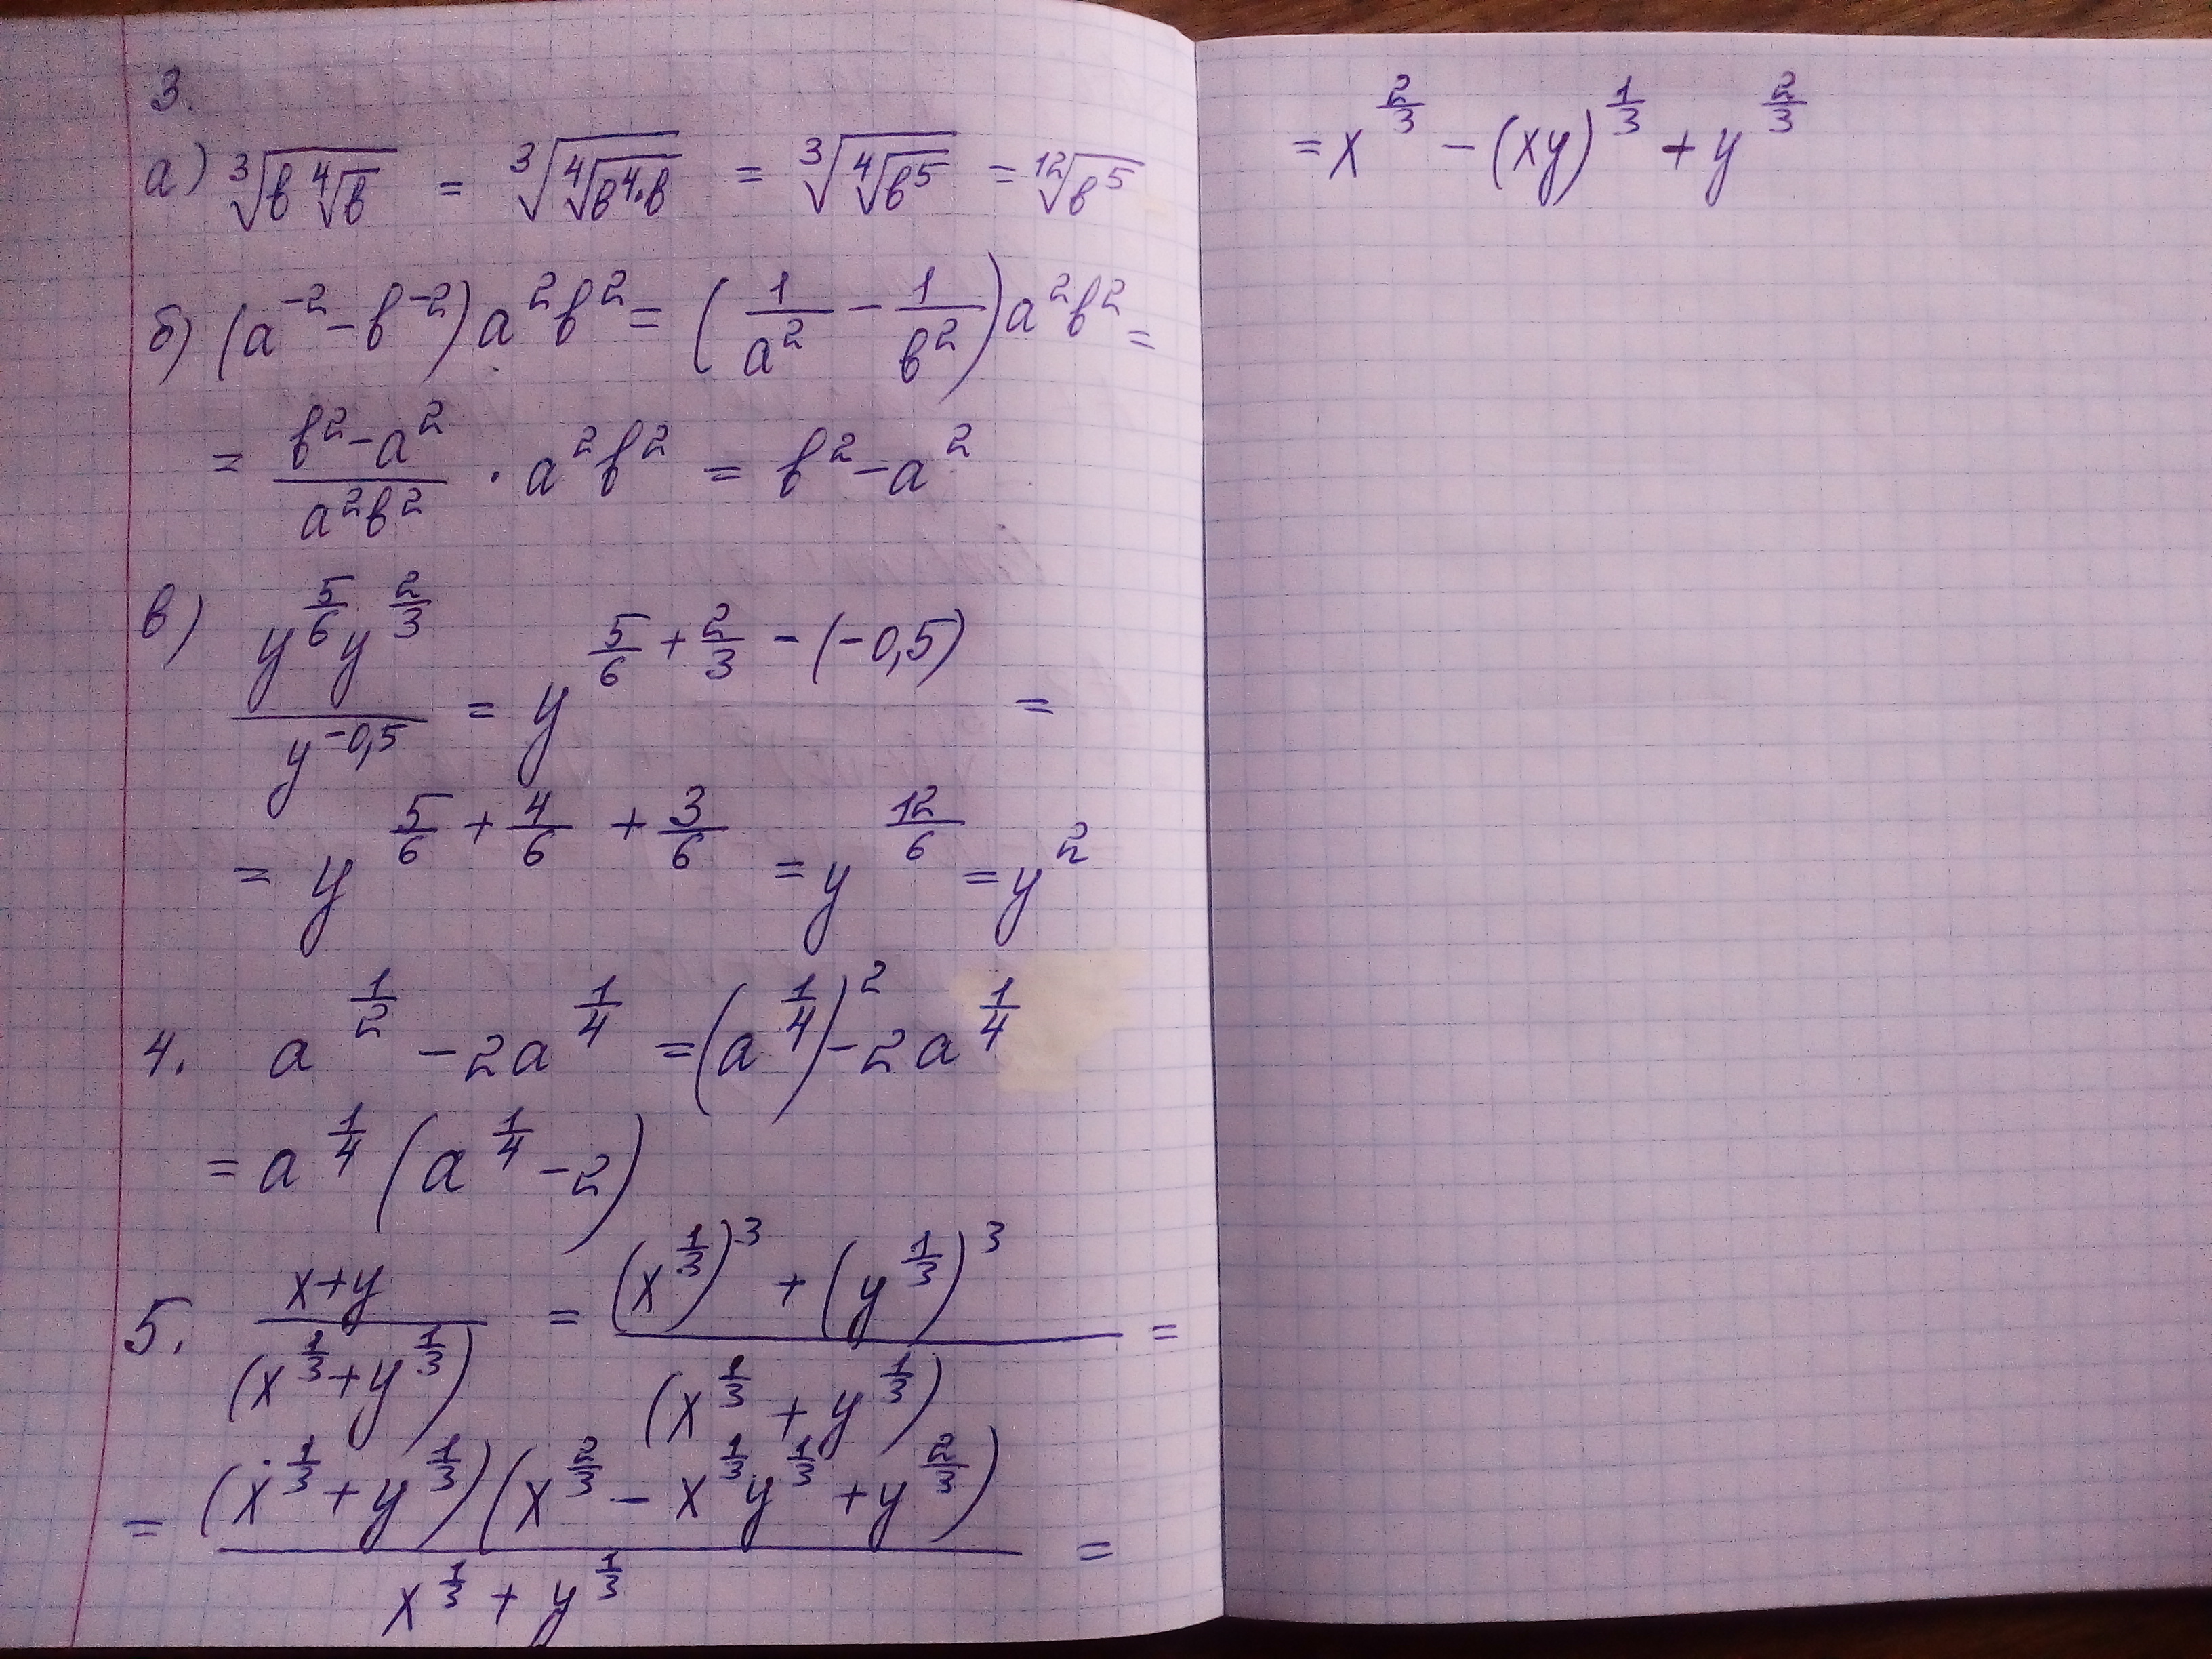 3.
а) ∛(в ∜в) = ∛(∜(в⁴·в)) = ∛(∜(в⁵)) = ¹²√(в⁵)
б) (a⁻² − в⁻²) a²в² = (1/a² − 1/в²) a²в² =
= (в² − a²)/(a²в²) · a²в² = в² − a²
в) (y^(5/6) y^(2/3))/(y^(−0,5)) = y^(5/6 + 2/3 − (−0,5)) =
= y^(5/6 + 4/6 + 3/6) = y^(12/6) = y²
4. a^(1/2) − 2a^(1/4) = (a^(1/4))² − 2a^(1/4)
= a^(1/4) (a^(1/4) − 2)
5. (x+y)/((x^(1/3) + y^(1/3))) = ((x^(1/3))³ + (y^(1/3))³)/((x^(1/3) + y^(1/3))) =
= ((x^(1/3) + y^(1/3))(x^(2/3) − x^(1/3)y^(1/3) + y^(2/3)))/(x^(1/3) + y^(1/3)) =
= x^(2/3) − (xy)^(1/3) + y^(2/3)